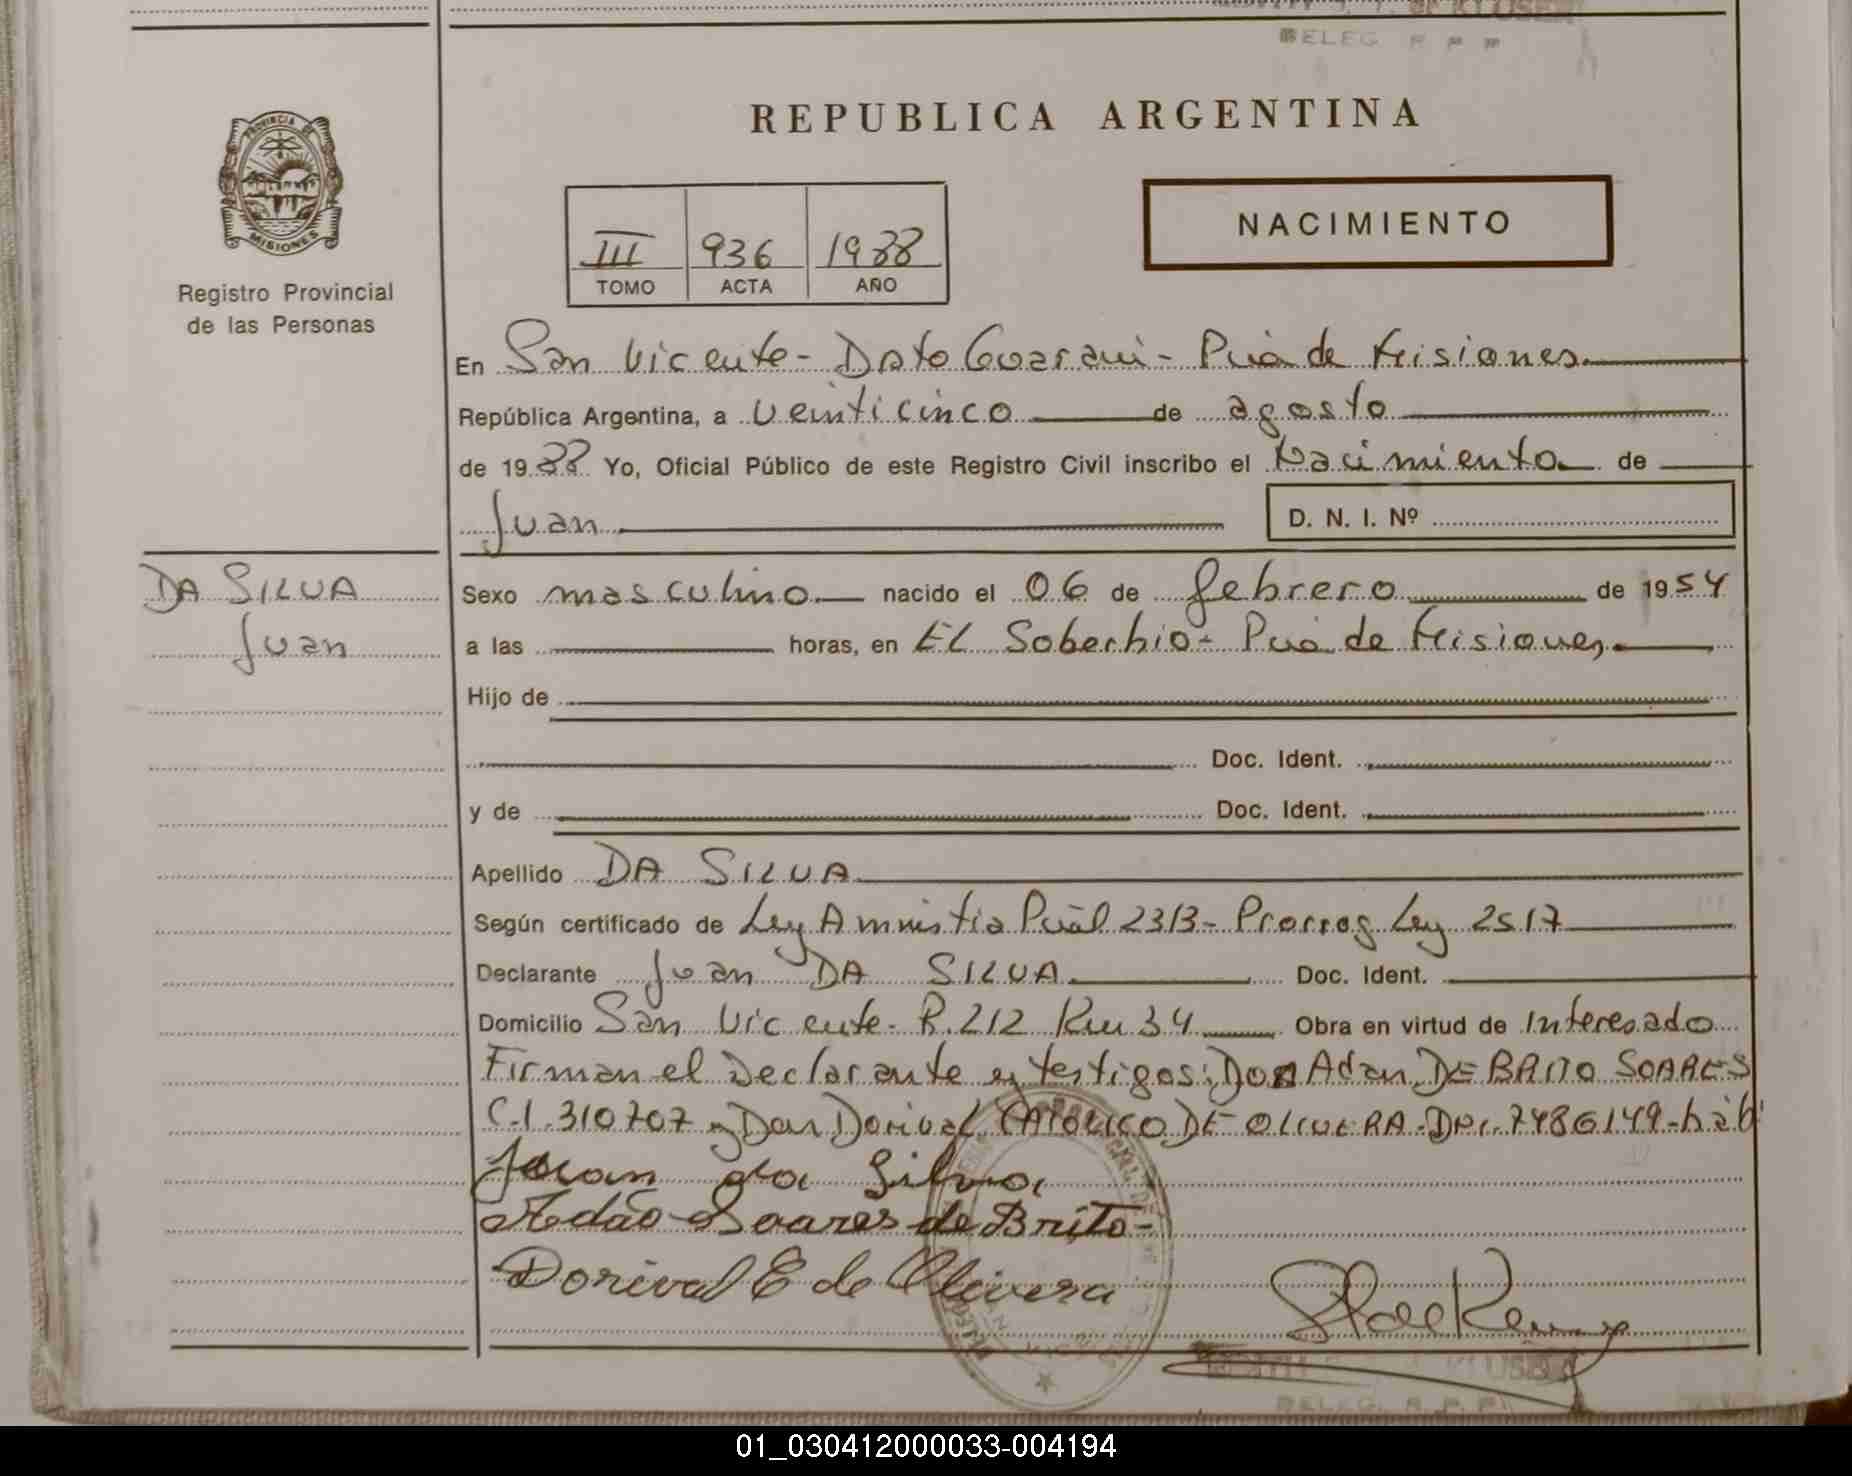 DELEG. R P P
REPUBLICA ARGENTINA
PROVINCIA DE
MISIONES
NACIMIENTO
III 936 1988
TOMO ACTA AÑO
Registro Provincial
de las Personas
En San Vicente - Dpto Guarani - Pcia de Misiones.
República Argentina, a veinticinco de agosto
de 1988 Yo, Oficial Público de este Registro Civil inscribo el Nacimiento de
Juan D. N. I. Nº
DA SILVA
Juan
Sexo masculino nacido el 06 de febrero de 1954
a las horas, en EL Soberbio - Pcia de Misiones,
Hijo de
Doc. Ident.
y de Doc. Ident.
Apellido DA SILVA
Según certificado de Ley Amnistia Pcial 2313 - Prorrog Ley 2517
Declarante Juan DA SILVA. Doc. Ident.
Domicilio San Vicente - R. 212 Km 34 Obra en virtud de Interesado
Firman el Declarante y testigos: Don Adan DE BRITO SOARES
C.I. 310707 y Don Dorival CATOLICO DE OLIVERA - DNI. 7486149 - hab
Joan da Silva
Adão Soares de Brito -
Dorival E de Olivera
DELEG. R. P. P.
01_030412000033-004194